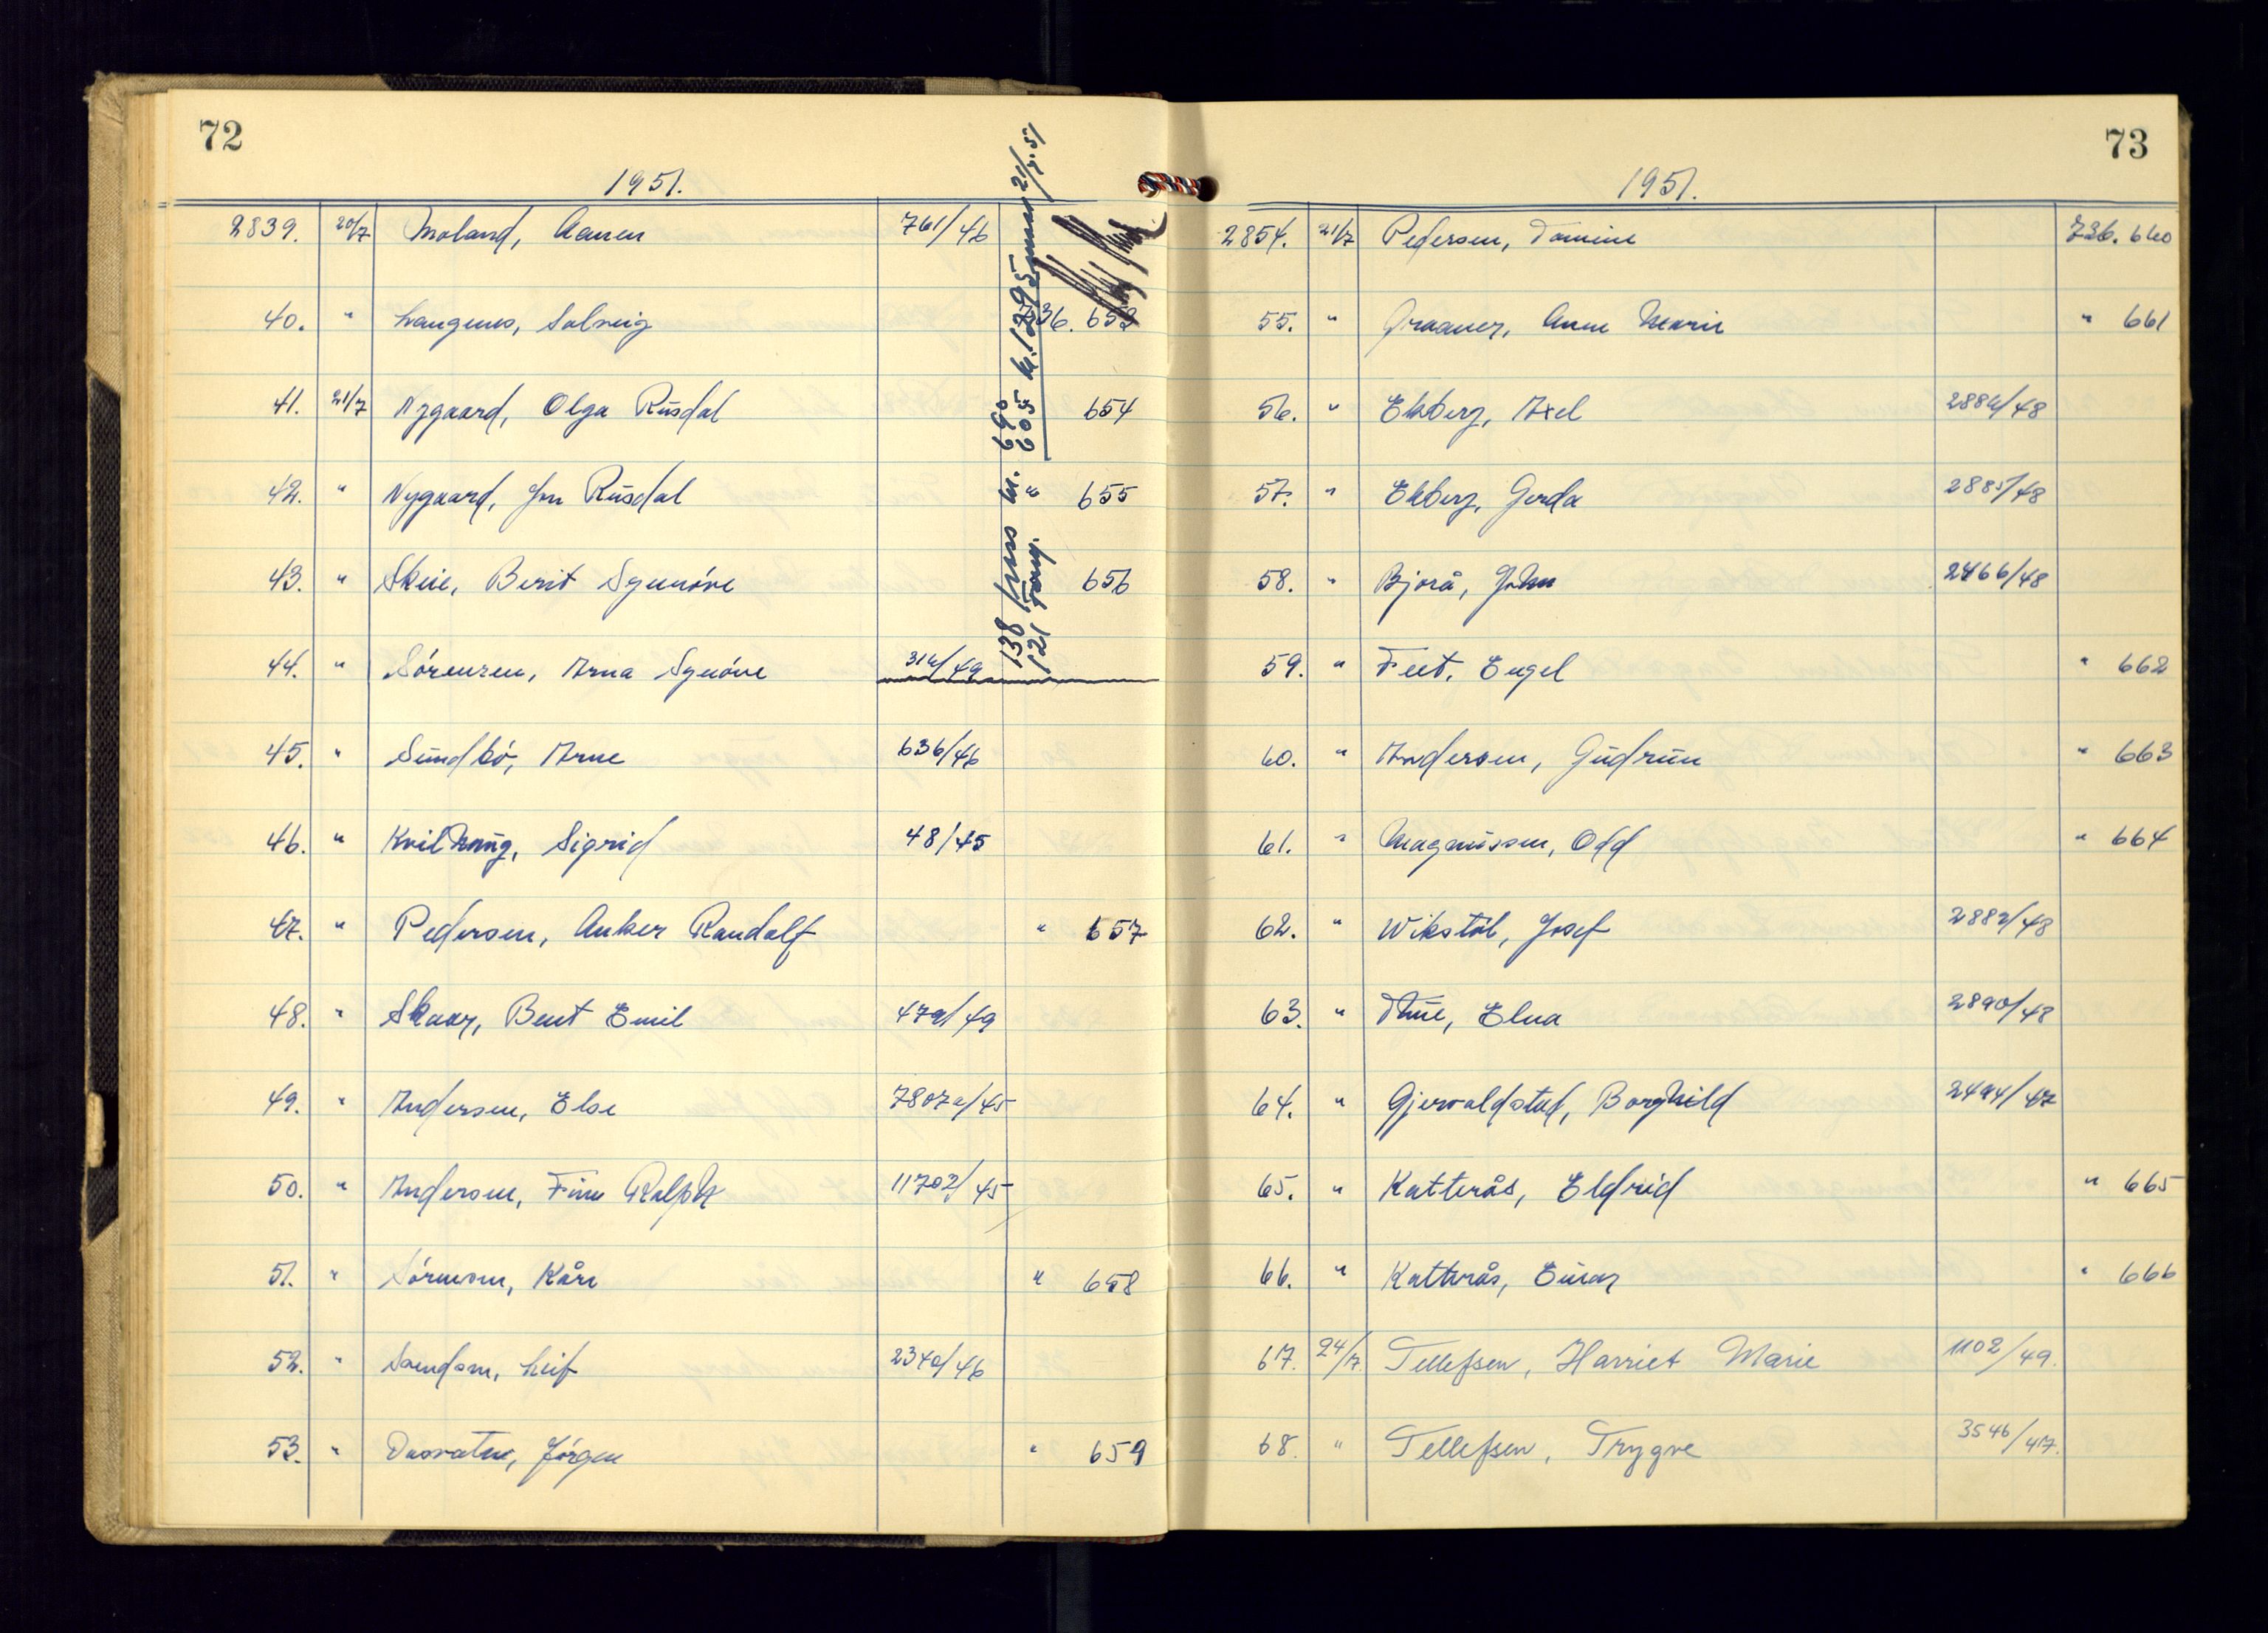 72
1951.
2839. 20/7 Moland, Aanen 761/46
40. " Langenes, Solveig 736. 653
41. 21/7 Nygaard, Olga Rusdal 654
42. " Nygaard, Jon Rusdal 655
43. " Skeie, Berit Synnóve 656
44. " Sórensen, Arna Synóve 314/49
45. " Sundbó, Arne 636/46
46. " Kvilhaug, Sigrid 48/45
47. " Pedersen, Anker Randolf " 657
48. " Skaar, Bent Emil 479/49
49. " Andersen, Else 7807a/45
50. " Andersen, Finn Ralph 11702/45
51. " Sórensen, Kåre " 658
52. " Svendsen, Leif 2340/46
53. " Dasvatn, Jörgen " 659
138 pass kr. 690
121 forny. " 605 kr. 1295 21/7.51
73
1951.
2854. 21/7 Pedersen, Tomine 736. 660
55. " Graaner, Anne Marie " 661
56. " Ekberg, Axel 2884/48
57. " Ekberg, Gerda 2885/48
58. " Bjorå, John 2466/48
59. " Feet, Engel " 662
60. " Andersen, Gudrun " 663
61. " Magnussen, Odd " 664
62. " Wikstöl, Josef 2882/48
63. " Thue, Elna 2890/48
64. " Gjervaldstad, Borghild 2494/47
65. " Katterås, Eldrid " 665
66. " Katterås, Einar " 666
67. 24/7. Tellefsen, Harriet Marie 1102/49.
68. " Tellefsen, Trygve 3546/47.